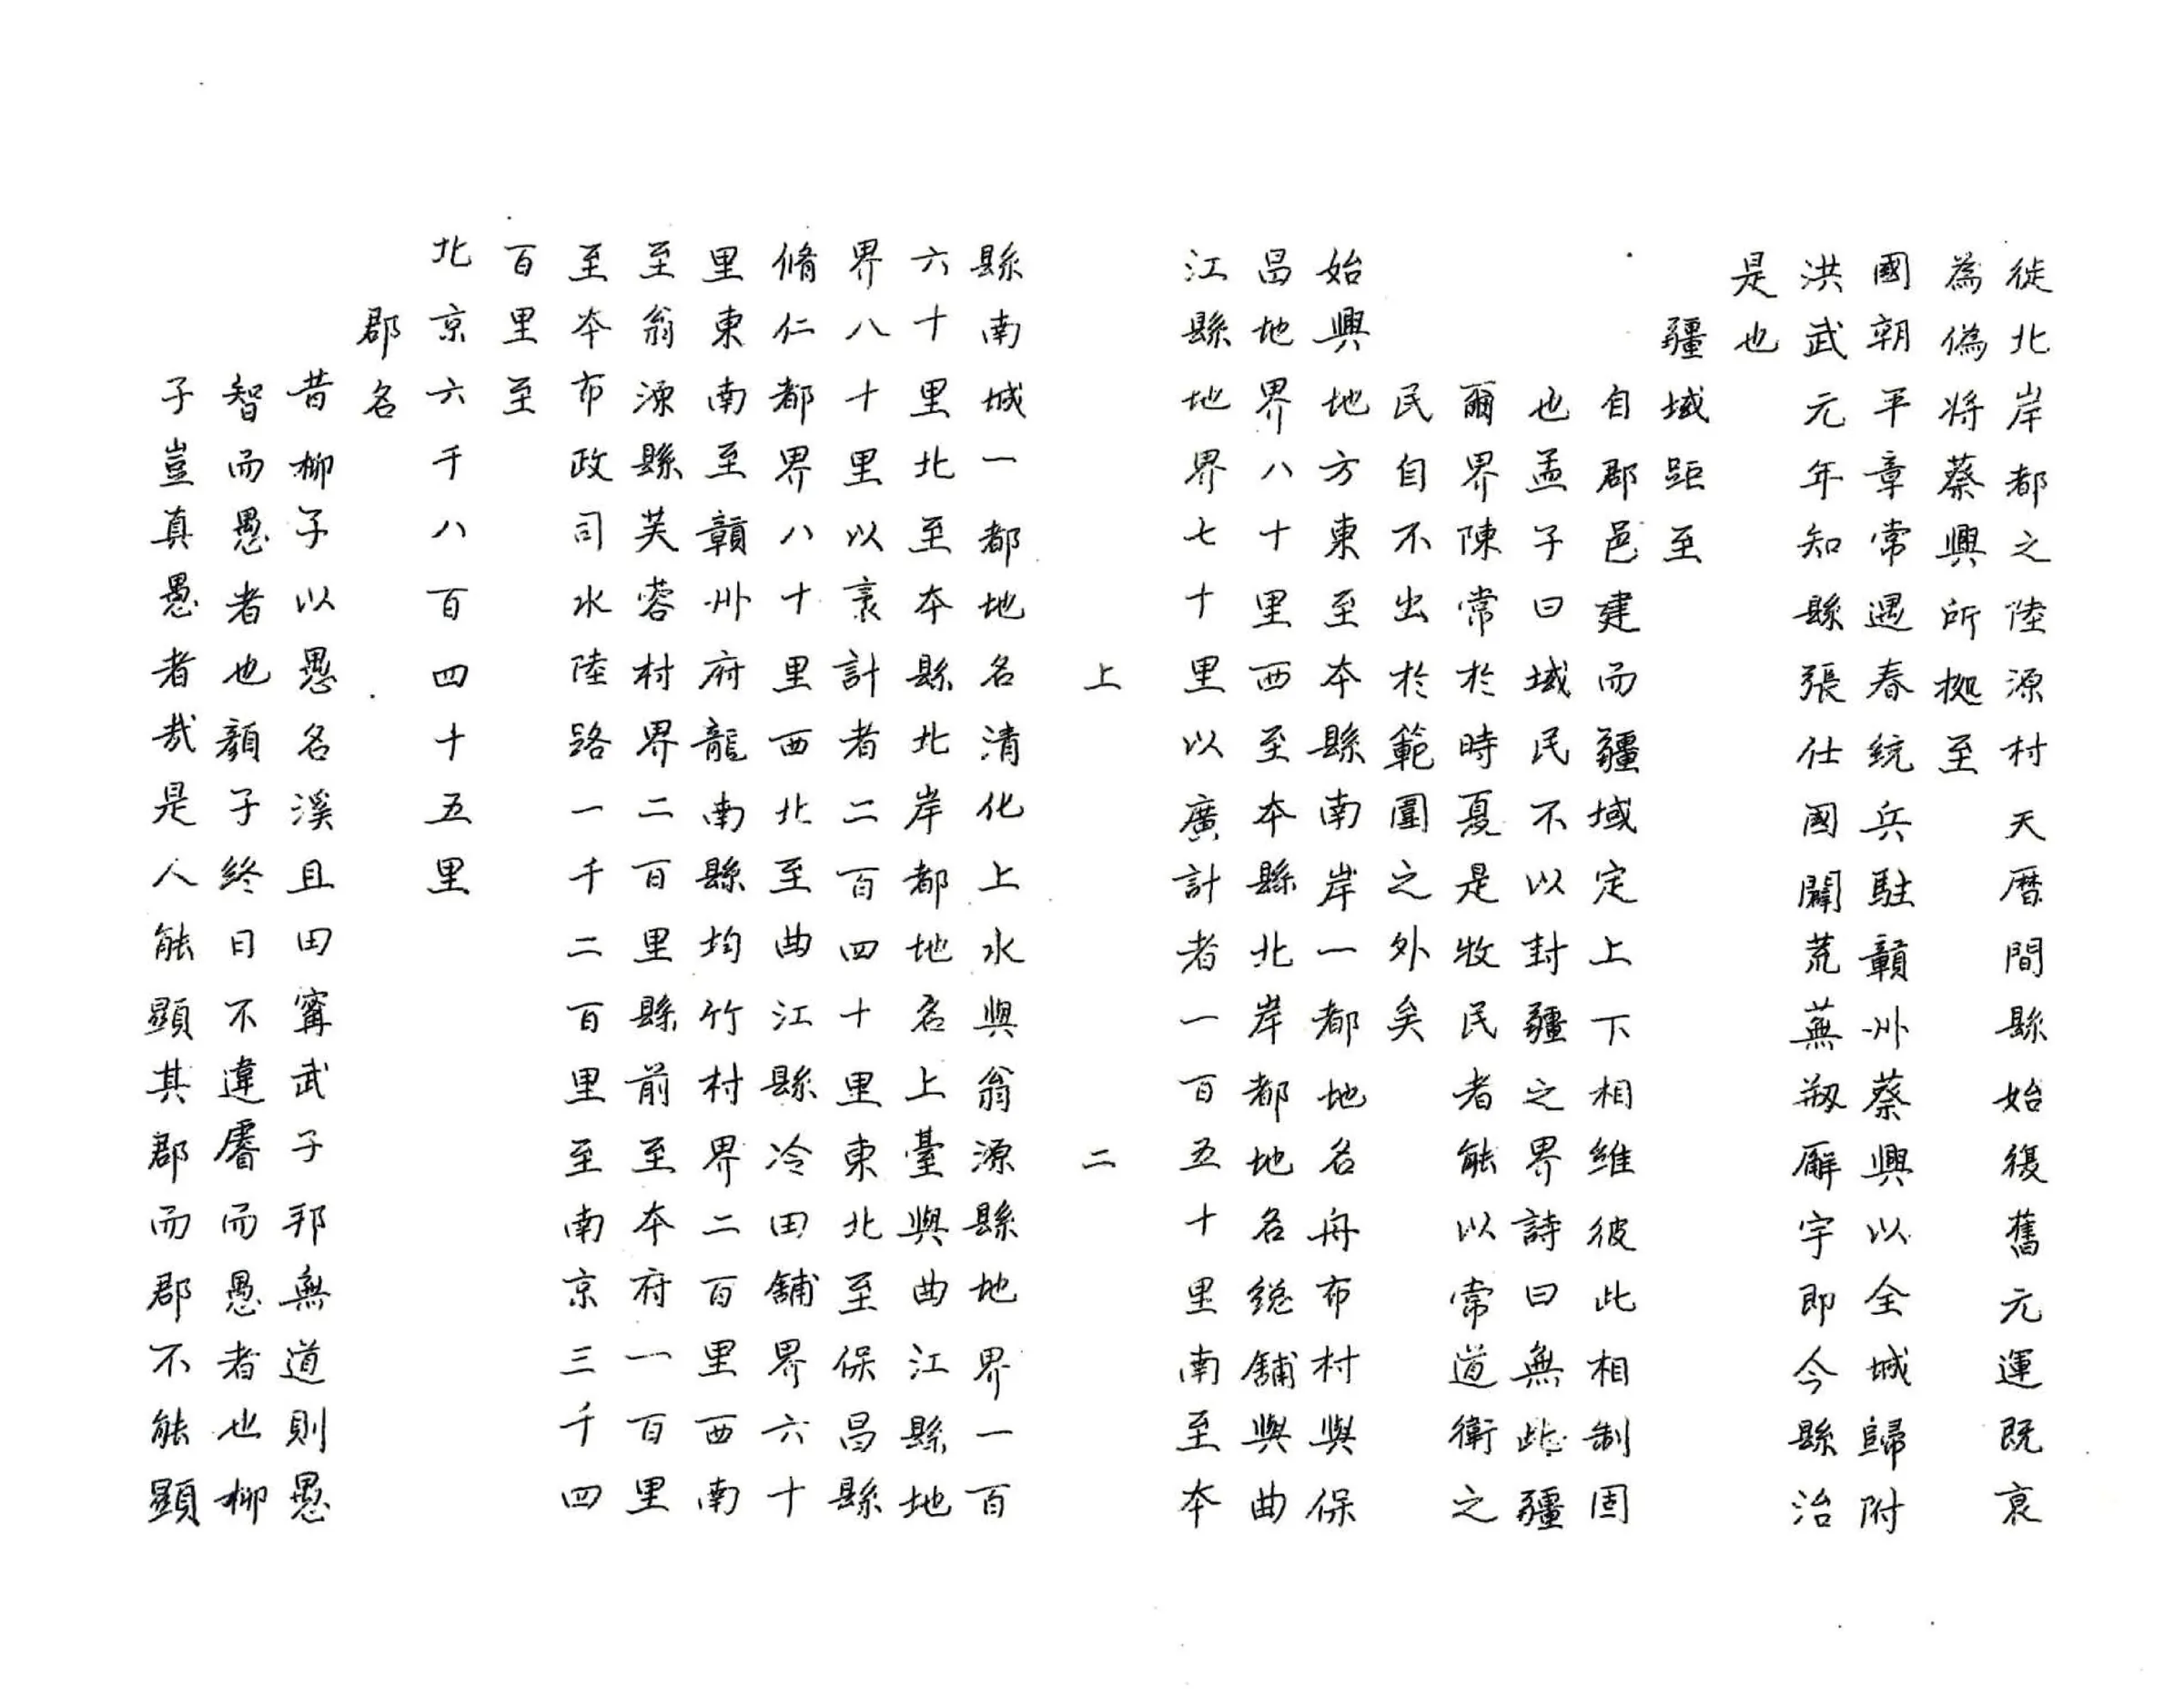 徙北岸都之陸源村天曆間縣始復舊元運既衰
為偽将蔡興所拠至
國朝平章常遇春統兵駐贛州蔡興以全城歸附
洪武元年知縣張仕國闢荒蕪剏廨宇即今縣治
是也
疆域距至
自郡邑建而疆域定上下相維彼此相制固
也孟子曰域民不以封疆之界詩曰無此疆
爾界陳常於時夏是牧民者能以常道衛之
民自不出於範圍之外矣
始興地方東至本縣南岸一都地名舟布村與保
昌地界八十里西至本縣北岸都地名總舖與曲
江縣地界七十里以廣計者一百五十里南至本
上 二
縣南城一都地名清化上水與翁源縣地界一百
六十里北至本縣北岸都地名上臺與曲江縣地
界八十里以袤計者二百四十里東北至保昌縣
脩仁都界八十里西北至曲江縣冷田舖界六十
里東南至贛州府龍南縣均竹村界二百里西南
至翁源縣芙蓉村界二百里縣前至本府一百里
至本布政司水陸路一千二百里至南京三千四
百里至
北京六千八百四十五里
郡名
昔柳子以愚名溪且田寗武子邦無道則愚
智而愚者也顏子終日不違睿而愚者也柳
子豈真愚者哉是人能顯其郡而郡不能顯